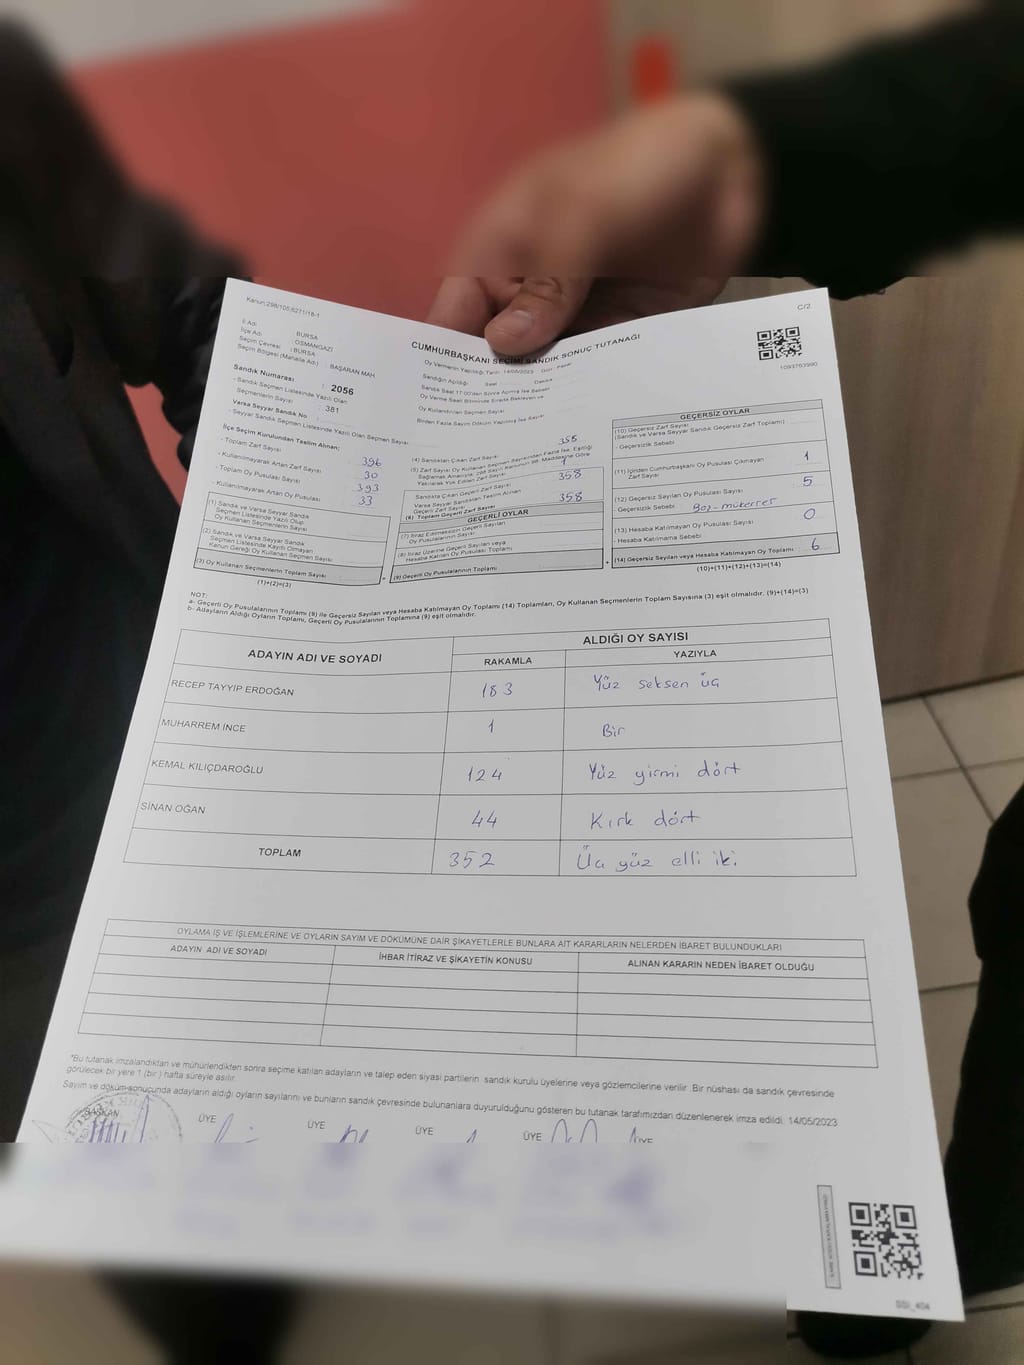 Kanun:298/105,6271/18-1
C/2
İl Adı : BURSA
İlçe Adı : OSMANGAZİ
Seçim Çevresi : BURSA
Seçim Bölgesi (Mahalle Adı) : BAŞARAN MAH.
CUMHURBAŞKANI SEÇİMİ SANDIK SONUÇ TUTANAĞI
Oy Vermenin Yapıldığı Tarih: 14/05/2023 Gün: Pazar
Sandığın Açıldığı Saat Dakika
Sandık Saat 17:00'den Sonra Açılmış İse Sebebi
Oy Verme Saati Bitiminde Sırada Bekleyen ve
Oy Kullandırılan Seçmen Sayısı
Birden Fazla Sayım Döküm Yapılmış İse Sayısı
1093763990
Sandık Numarası : 2056
- Sandık Seçmen Listesinde Yazılı Olan
Seçmenlerin Sayısı : 381
Varsa Seyyar Sandık No
- Seyyar Sandık Seçmen Listesinde Yazılı Olan Seçmen Sayısı
İlçe Seçim Kurulundan Teslim Alınan;
- Toplam Zarf Sayısı 396
- Kullanılmayarak Artan Zarf Sayısı 30
- Toplam Oy Pusulası Sayısı 393
- Kullanılmayarak Artan Oy Pusulası 33
(1) Sandık ve Varsa Seyyar Sandık
Seçmen Listesinde Yazılı Olup
Oy Kullanan Seçmenlerin Sayısı
(2) Sandık ve Varsa Seyyar Sandık
Seçmen Listesinde Kayıtlı Olmayan
Kanun Gereği Oy Kullanan Seçmen Sayısı
(3) Oy Kullanan Seçmenlerin Toplam Sayısı
(1)+(2)=(3)
(4) Sandıktan Çıkan Zarf Sayısı 358
(5) Zarf Sayısı Oy Kullanan Seçmen Sayısından Fazla İse, Eşitliği
Sağlamak Amacıyla; 298 Sayılı Kanunun 98. Maddesine Göre
Yakılarak Yok Edilen Zarf Sayısı
Sandıkta Çıkan Geçerli Zarf Sayısı 358
Varsa Seyyar Sandıktan Teslim Alınan
Geçerli Zarf Sayısı
(6) Toplam Geçerli Zarf Sayısı 358
GEÇERLİ OYLAR
(7) İtiraz Edilmeksizin Geçerli Sayılan
Oy Pusulalarının Sayısı
(8) İtiraz Üzerine Geçerli Sayılan veya
Hesaba Katılan Oy Pusulası Toplamı
(9) Geçerli Oy Pusulalarının Toplamı
GEÇERSİZ OYLAR
(10) Geçersiz Zarf Sayısı
(Sandık ve Varsa Seyyar Sandık Geçersiz Zarf Toplamı)
- Geçersizlik Sebebi
(11) İçinden Cumhurbaşkanı Oy Pusulası Çıkmayan
Zarf Sayısı 1
(12) Geçersiz Sayılan Oy Pusulası Sayısı 5
- Geçersizlik Sebebi Boş-mükerrer
(13) Hesaba Katılmayan Oy Pusulası Sayısı 0
- Hesaba Katılmama Sebebi
(14) Geçersiz Sayılan veya Hesaba Katılmayan Oy Toplamı 6
(10)+(11)+(12)+(13)=(14)
NOT:
a- Geçerli Oy Pusulalarının Toplamı (9) ile Geçersiz Sayılan veya Hesaba Katılmayan Oy Toplamı (14) Toplamları, Oy Kullanan Seçmenlerin Toplam Sayısına (3) eşit olmalıdır. (9)+(14)=(3)
b- Adayların Aldığı Oyların Toplamı, Geçerli Oy Pusulalarının Toplamına (9) eşit olmalıdır.
ADAYIN ADI VE SOYADI ALDIĞI OY SAYISI
RAKAMLA YAZIYLA
RECEP TAYYİP ERDOĞAN 183 Yüz seksen üç
MUHARREM İNCE 1 Bir
KEMAL KILIÇDAROĞLU 124 Yüz yirmi dört
SİNAN OĞAN 44 Kırk dört
TOPLAM 352 Üç yüz elli iki
OYLAMA İŞ VE İŞLEMLERİNE VE OYLARIN SAYIM VE DÖKÜMÜNE DAİR ŞİKAYETLERLE BUNLARA AİT KARARLARIN NELERDEN İBARET BULUNDUKLARI
ADAYIN ADI VE SOYADI İHBAR İTİRAZ VE ŞİKAYETİN KONUSU ALINAN KARARIN NEDEN İBARET OLDUĞU
*Bu tutanak imzalandıktan ve mühürlendikten sonra seçime katılan adayların ve talep eden siyasi partilerin sandık kurulu üyelerine veya gözlemcilerine verilir. Bir nüshası da sandık çevresinde
görülecek bir yere 1 (bir) hafta süreyle asılır.
Sayım ve döküm sonucunda adayların aldığı oyların sayılarını ve bunların sandık çevresinde bulunanlara duyurulduğunu gösteren bu tutanak tarafımızdan düzenlenerek imza edildi. 14/05/2023
BAŞKAN ÜYE ÜYE ÜYE ÜYE ÜYE
SSİ_404